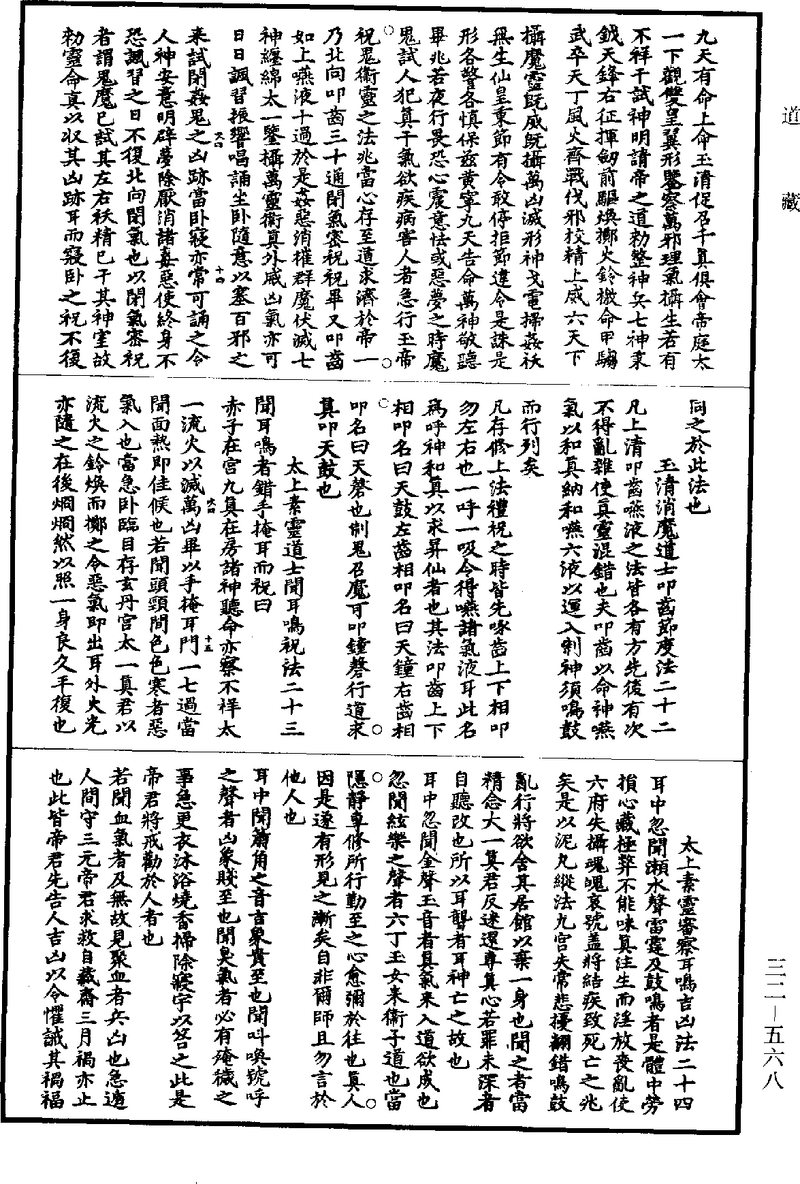 道藏
九天有命上命玉清促召千真俱會帝庭太
一下觀雙皇翼形鑒察萬邪理氣攝生若有
不祥干試神明請帝之道勑整神兵七神秉
鉞天鋒右征揮劒前驅煥擲火鈴檄命甲騶
武卒天丁風火齊戰伐邪挍精上威六天下
攝魔靈既威既攝萬凶滅形神戈電掃姦祅
無生仙皇秉節有令敢停拒節違令是誅是
形各警各慎保茲黄寧九天告命萬神敬聽
畢兆若夜行畏恐心震意怯或惡夢之時魔
鬼試人犯真干氣欲疾病害人者急行玉帝
祝鬼衛靈之法兆當心存至道求濟於帝一
乃北向叩齒三十通閉氣密祝祝畢又叩齒
如上嚥液十過於是姦惡消摧群魔伏滅七
神纏綿太一鑒攝萬靈衛真外威凶氣亦可
日日諷習振響唱誦坐卧隨意以塞百邪之
來試閉姦鬼之凶跡當卧寢亦常可誦之令
人神安意明辟夢除厭消諸毒惡使終身不
恐諷習之日不復北向閉氣也以閉氣密祝
者謂鬼魔已試其左右祅精已干其神室故
勑靈命真以収其凶跡耳而寢卧之祝不復
同之於此法也
玉清消魔道士叩齒節度法二十二
凡上清叩齒嚥液之法皆各有方先後有次
不得亂雜使真靈混錯也夫叩齒以命神嚥
氣以和真納和嚥六液以運入制神須鳴鼓
而行列矣
凡存修上法禮祝之時皆先啄齒上下相叩
勿左右也一呼一吸令得嚥諸氣液耳此名
爲呼神和真以求昇仙者也其法叩齒上下
相叩名曰天鼓左齒相叩名曰天鐘右齒相
叩名曰天磬也制鬼召魔可叩鐘磬行道求
真叩天鼓也
太上素靈道士聞耳鳴祝法二十三
聞耳鳴者錯手掩耳而祝曰
赤子在宫九真在房諸神聽命亦察不祥太
一流火以滅萬凶畢以手掩耳門一七過當
聞面熱即佳候也若聞頭頸間色色寒者惡
氣入也當急卧臨目存玄丹宫太一真君以
流火之鈴煥而擲之令惡氣即出耳外火光
亦隨之在後烱烱然以照一身良久平復也
太上素靈審察耳鳴吉凶法二十四
耳中忽聞瀨水聲雷霆及鼓鳴者是體中勞
損心藏極弊不能味真注生而淫放喪亂使
六府失攝魂魄哀號盖將結疾致死亡之兆
矣是以泥丸縱法九宫失常悲擾翻錯鳴鼓
亂行將欲舍其居館以棄一身也聞之者當
精念大一真君反迷還尊真心若罪未深者
自聽改也所以耳聾者耳神亡之故也
耳中忽聞金聲玉音者真氣來入道欲成也
忽聞絃樂之聲者六丁玉女來衛子道也當
隱靜專修所行勤至之心愈彌於往也真人
因是遂有形見之漸矣自非爾師且勿言於
他人也
耳中聞簫角之音吉象貴至也聞叫喚號呼
之聲者凶象賤至也聞臭氣者必有殗穢之
事急更衣沐浴燒香掃除寢宇以答之此是
帝君將戒勸於人者也
若聞血氣者及無故見聚血者兵凶也急遁
人間守三元帝君求救自藏齋三月禍亦止
也此皆帝君先告人吉凶以令懼誡其禍福
三二—五六八